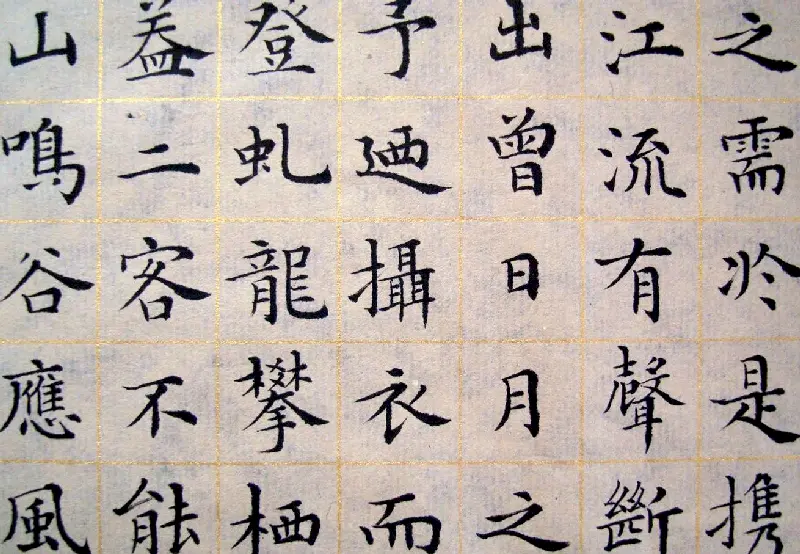 之需於是携
江流有聲斷
出曾日月之
予廼攝衣而
登虬龍攀栖
盖二客不能
山鳴谷應風